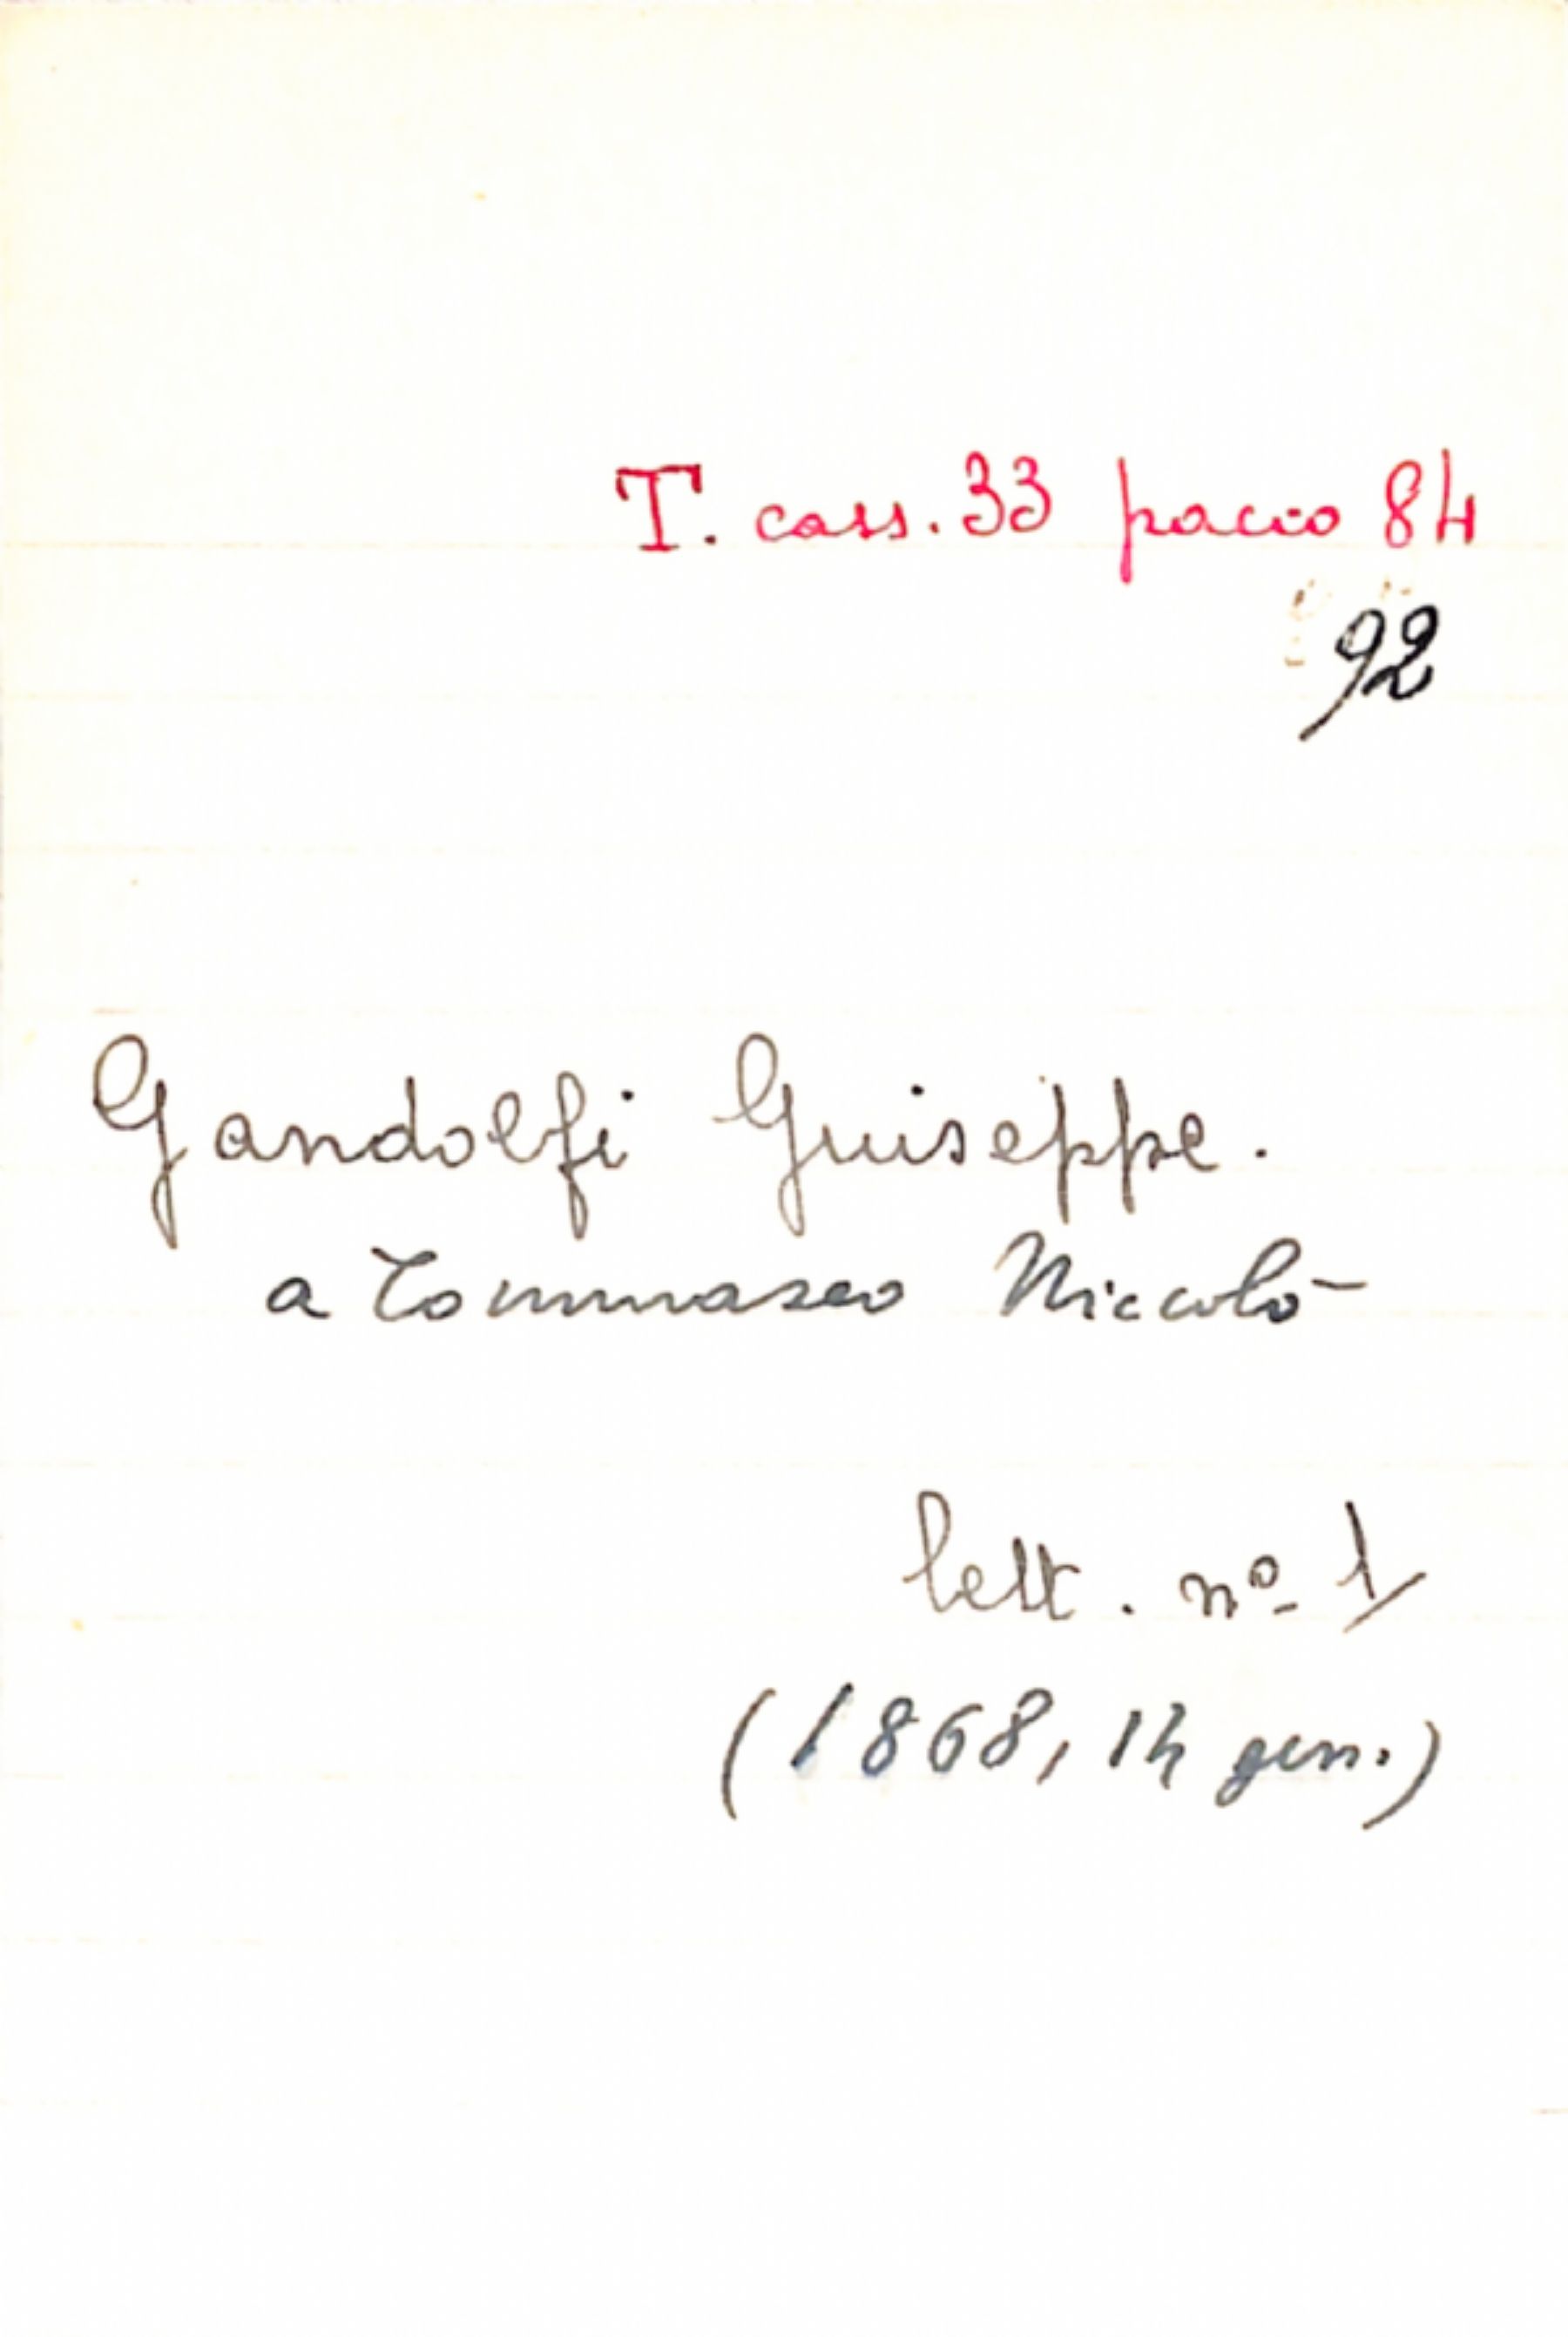 T. cass. 33 pacco 84
92
Gandolfi Guiseppe.
a Tommaseo Niccolò
lett. nº 1
(1868, 14 gen.)